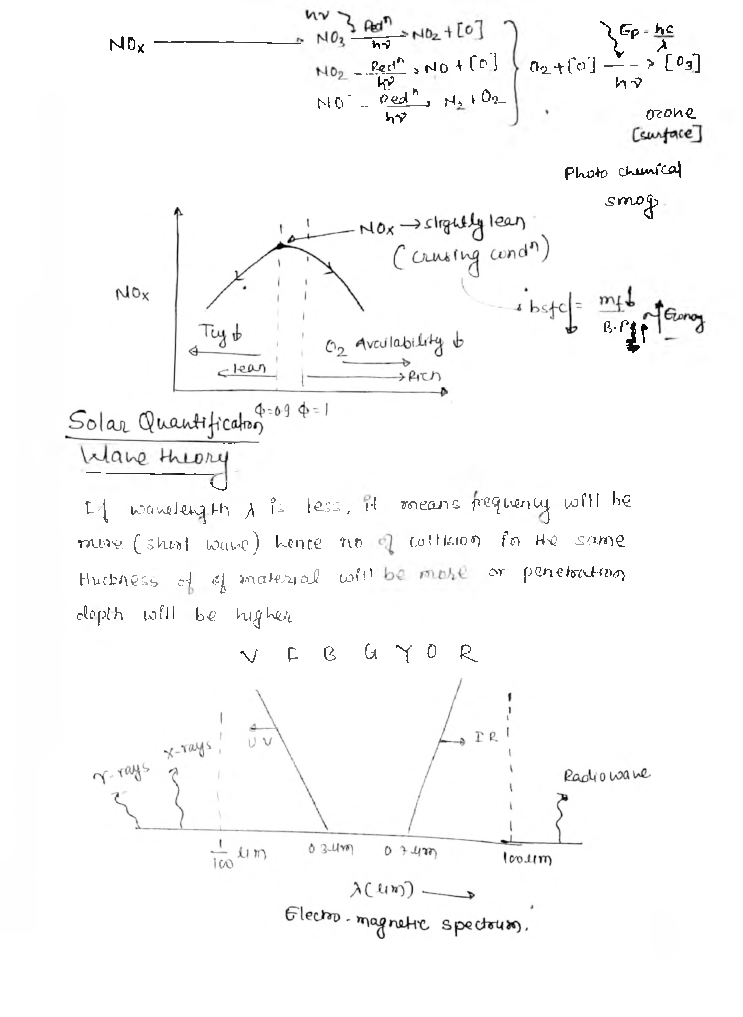 hν
NOx → NO3 —Redⁿ/hν→ NO2 + [O]
NO2 —Redⁿ/hν→ NO + [O]
NO —Redⁿ/hν→ N2 + O2
O2 + [O] —hν→ [O3]
Ep = hc/λ
ozone
[surface]
Photo chemical
smog
NOx → slightly lean
(crusing condⁿ)
NOx
bsfc↓ = mf↓/B.P
Economy
Tcy ↓
O2 Availability ↓
lean
Rich
Φ=0.9 Φ=1
Solar Quantification
Wave theory
If wavelength λ is less, it means frequency will be
more (short wave) hence no of collision in the same
thickness of of material will be more or penetration
depth will be higher
V I B G Y O R
UV
IR
γ-rays
X-rays
Radiowave
1/100 μm
0.3μm
0.7μm
100μm
λ(μm) →
Electro-magnetic spectrum.